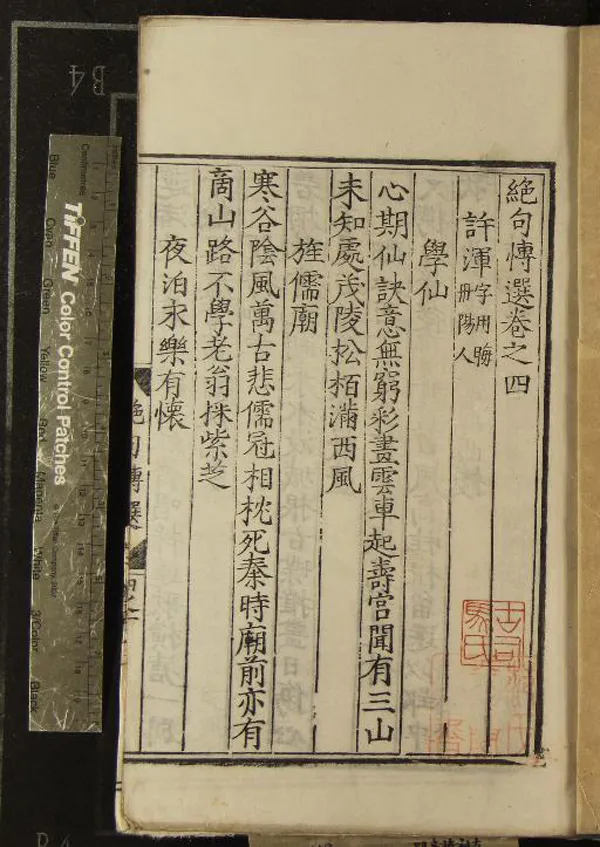 絕句博選卷之四
許渾字用晦丹陽人
學仙
心期仙訣意無窮彩畫雲車起壽宮聞有三山
未知處茂陵松栢滿西風
旌儒廟
寒谷陰風萬古悲儒冠相枕死秦時廟前亦有
商山路不學老翁採紫芝
夜泊永樂有懷
絶句博選
古司
馬氏
B4
TIFFEN Color Control Patches
Centimetres
Blue
Cyan
Green
Yellow
Red
Magenta
White
3/Color
Black